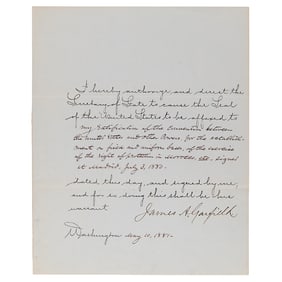 I hereby authorize and direct the
Secretary of State to cause the Seal
of the United States to be affixed to
my ratification of the Convention between
the United States and other Powers for the establish-
ment on fixed and uniform bases, of the exercise
of the right of protection in Morocco etc. signed
at Madrid, July 3, 1880.
dated this day, and signed by me
and for so doing this shall be his
warrant.
James A. Garfield
Washington May 10, 1881.